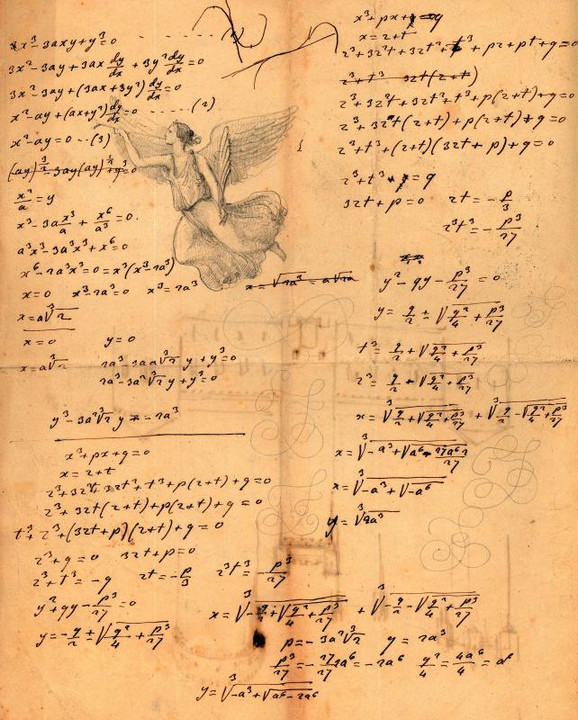 x³ - 3axy + y³ = 0 ...... (1)
3x² - 3ay + 3ax dy/dx + 3y² dy/dx = 0
3x² - 3ay + (3ax + 3y²) dy/dx = 0
x² - ay + (ax + y²) dy/dx = 0 ...... (2)
x² - ay = 0 ... (3)
x²/a = y
x³ - 3a x³/a + x⁶/a³ = 0.
a³x³ - 3a³x³ + x⁶ = 0
x⁶ - 2a³x³ = 0 = x³(x³ - 2a³)
x = 0 x³ - 2a³ = 0 x³ = 2a³
x = a∛2
x = 0 y = 0
x = a∛2 2a³ - 3aa∛2 y + y³ = 0
2a³ - 3a²∛2 y + y³ = 0
y³ - 3a²∛2 y = - 2a³
x³ + px + q = 0
x = z + t
z³ + 3z²t + 3zt² + t³ + p(z+t) + q = 0
z³ + 3zt(z+t) + p(z+t) + q = 0
t³ + z³ + (3zt + p)(z+t) + q = 0
z³ + q = 0 3zt + p = 0
z³ + t³ = -q zt = -p/3 z³t³ = -p³/27
y² + qy - p³/27 = 0
y = -q/2 ± √(q²/4 + p³/27)
x³ + px + = q
x = z + t
z³ + 3z²t + 3zt² + t³ + pz + pt + q = 0
z³ + t³ 3zt(z+t)
z³ + 3z²t + 3zt² + t³ + p(z+t) + q = 0
z³ + 3zt(z+t) + p(z+t) + q = 0
z³ + t³ + (z+t)(3zt + p) + q = 0
z³ + t³ = q
3zt + p = 0 zt = -p/3
z³t³ = -p³/27
x = ∛2a³ = a∛2a
y² - qy - p³/27 = 0
y = q/2 ± √(q²/4 + p³/27)
t³ = q/2 + √(q²/4 + p³/27)
z³ = q/2 + √(q²/4 + p³/27)
x = ∛(q/2 + √(q²/4 + p³/27)) + ∛(q/2 - √(q²/4 + p³/27))
x = ∛(-a³ + √(a⁶ - 27a⁶2/27))
x = ∛(-a³ + √-a⁶)
x = ∛(-q/2 + √(q²/4 + p³/27)) + ∛(-q/2 - √(q²/4 + p³/27))
p = -3a²∛2 q = 2a³
p³/27 = -27/27 2a⁶ = -2a⁶ q²/4 = 4a⁶/4 = a⁶
y = ∛(-a³ + √(a⁶ - 2a⁶))